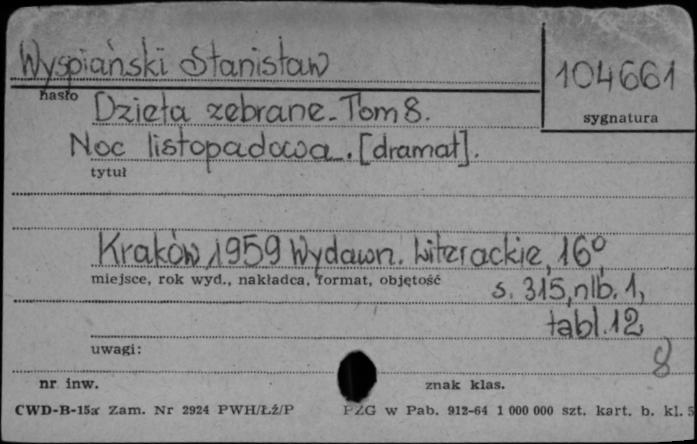 Wyspiański Stanisław
104661
hasło
sygnatura
Dzieła zebrane. Tom 8.
Noc listopadowa. [dramat].
tytuł
Kraków, 1959 Wydawn. Literackie, 16°,
miejsce, rok wyd., nakładca, format, objętość
s. 315, nlb. 1,
tabl. 12
uwagi:
8
nr inw.
znak klas.
CWD-B-15a Zam. Nr 2924 PWH/Łż/P
PZG w Pab. 912-64 1 000 000 szt. kart. b. kl. 5